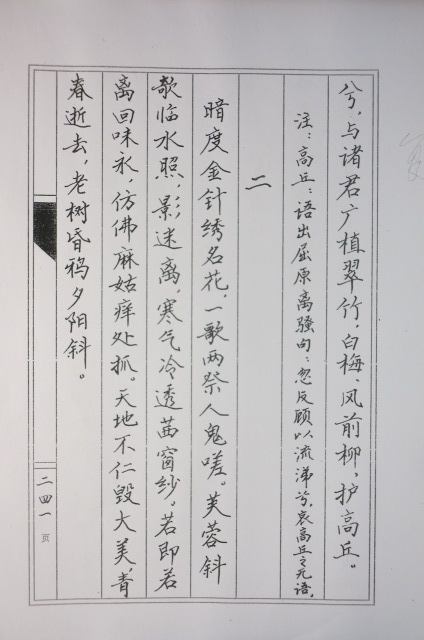 兮，与诸君广植翠竹，白梅、风前柳，护高丘。
注：高丘：语出屈原离骚句：忽反顾以流涕兮，哀高丘之无语，
二
暗度金针绣名花，一歌两祭人鬼嗟。芙蓉斜
欹临水照，影迷离，寒气冷透茜窗纱。若即若
离回味永，仿佛麻姑痒处抓。天地不仁毁大美，青
春逝去，老树昏鸦夕阳斜。
二四一页